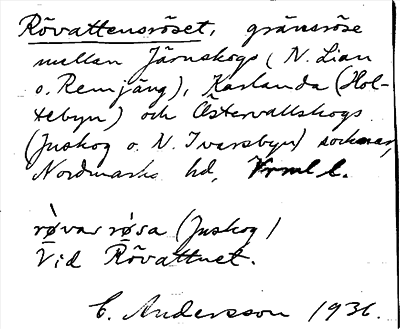 Rövattensröset, gränsröse
mellan Järnskogs (N. Lian
o. Remjäng), Karlanda (Hol-
tebyn) och Östervallskogs
(Juskog o. N. Ivarsbyn) socknar,
Nordmarks hd, Vrml l.
rø̀vasrø̀sa (Juskog)
Vid Rövattnet.
C. Andersson 1936.